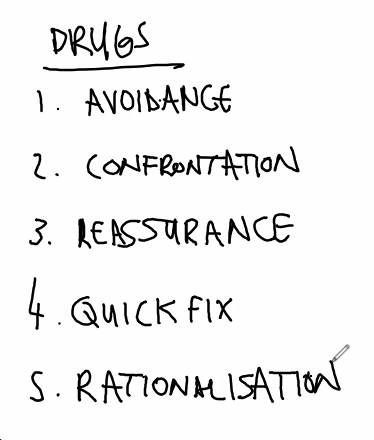 DRUGS
1. AVOIDANCE
2. CONFRONTATION
3. REASSURANCE
4. QUICK FIX
5. RATIONALISATION